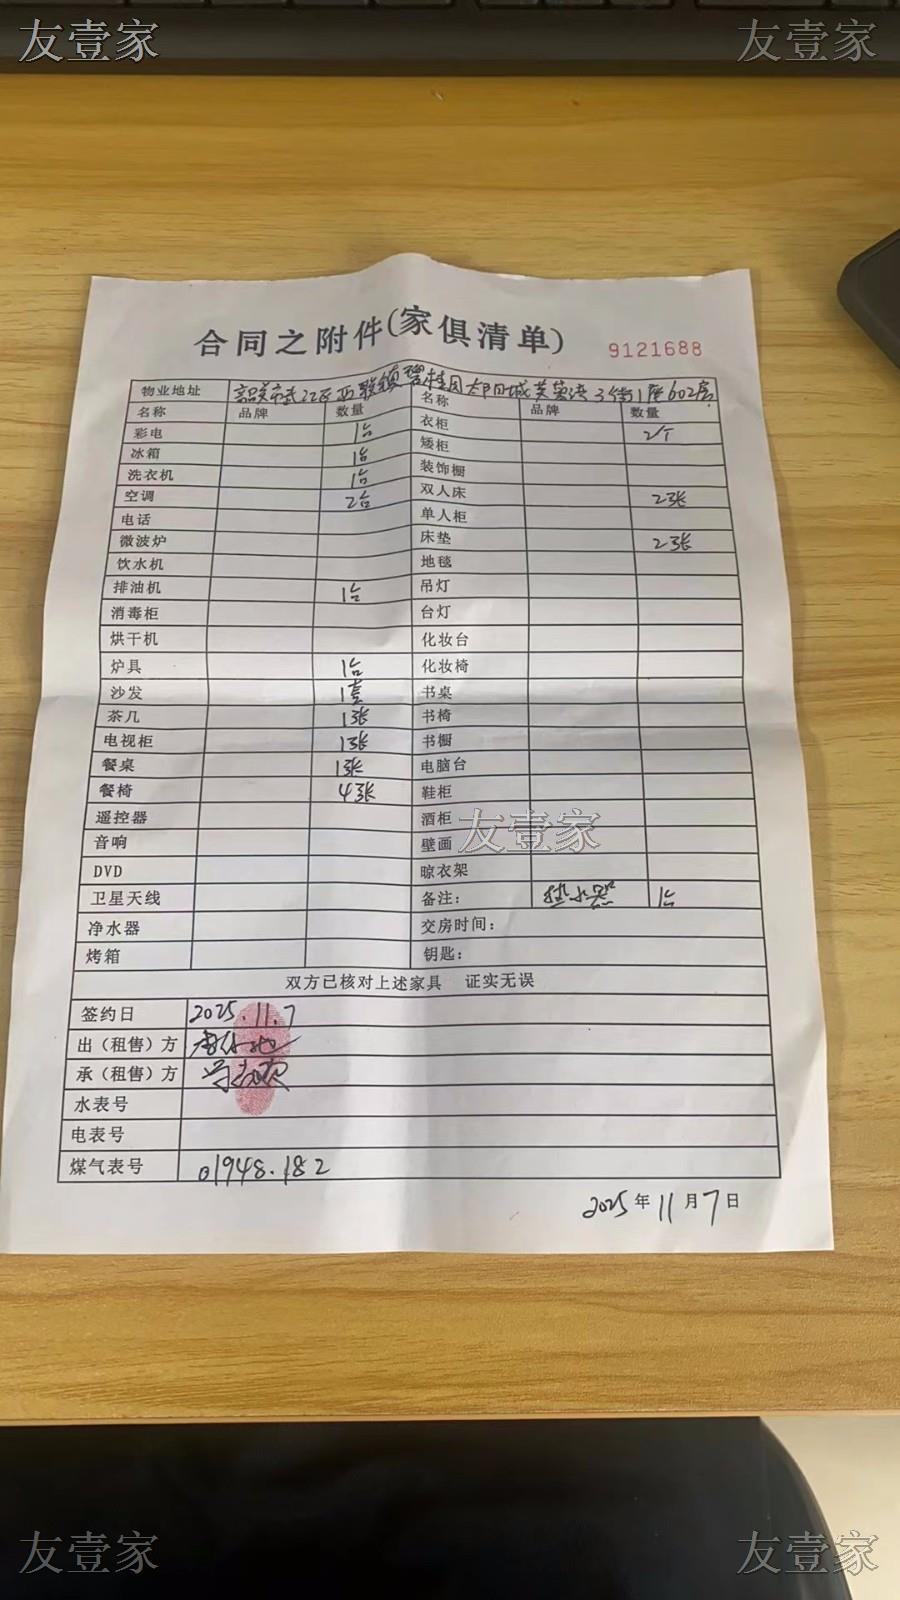 友壹家 友壹家
合同之附件(家俱清单) 9121688
物业地址 韶关市武江区西联镇碧桂园太阳城芙蓉湾3街1座602房
名称 品牌 数量 名称 品牌 数量
彩电 1台 衣柜 2个
冰箱 1台 矮柜
洗衣机 1台 装饰橱
空调 2台 双人床 2张
电话 单人柜
微波炉 床垫 2张
饮水机 地毯
排油机 1台 吊灯
消毒柜 台灯
烘干机 化妆台
炉具 1台 化妆椅
沙发 1套 书桌
茶几 1张 书椅
电视柜 1张 书橱
餐桌 1张 电脑台
餐椅 4张 鞋柜
遥控器 酒柜
友壹家
音响 壁画
DVD 晾衣架
卫星天线 备注: 热水器 1台
净水器 交房时间:
烤箱 钥匙:
双方已核对上述家具 证实无误
签约日 2025.11.7
出（租售）方
承（租售）方
水表号
电表号
煤气表号 01948.182
2025年11月7日
友壹家 友壹家